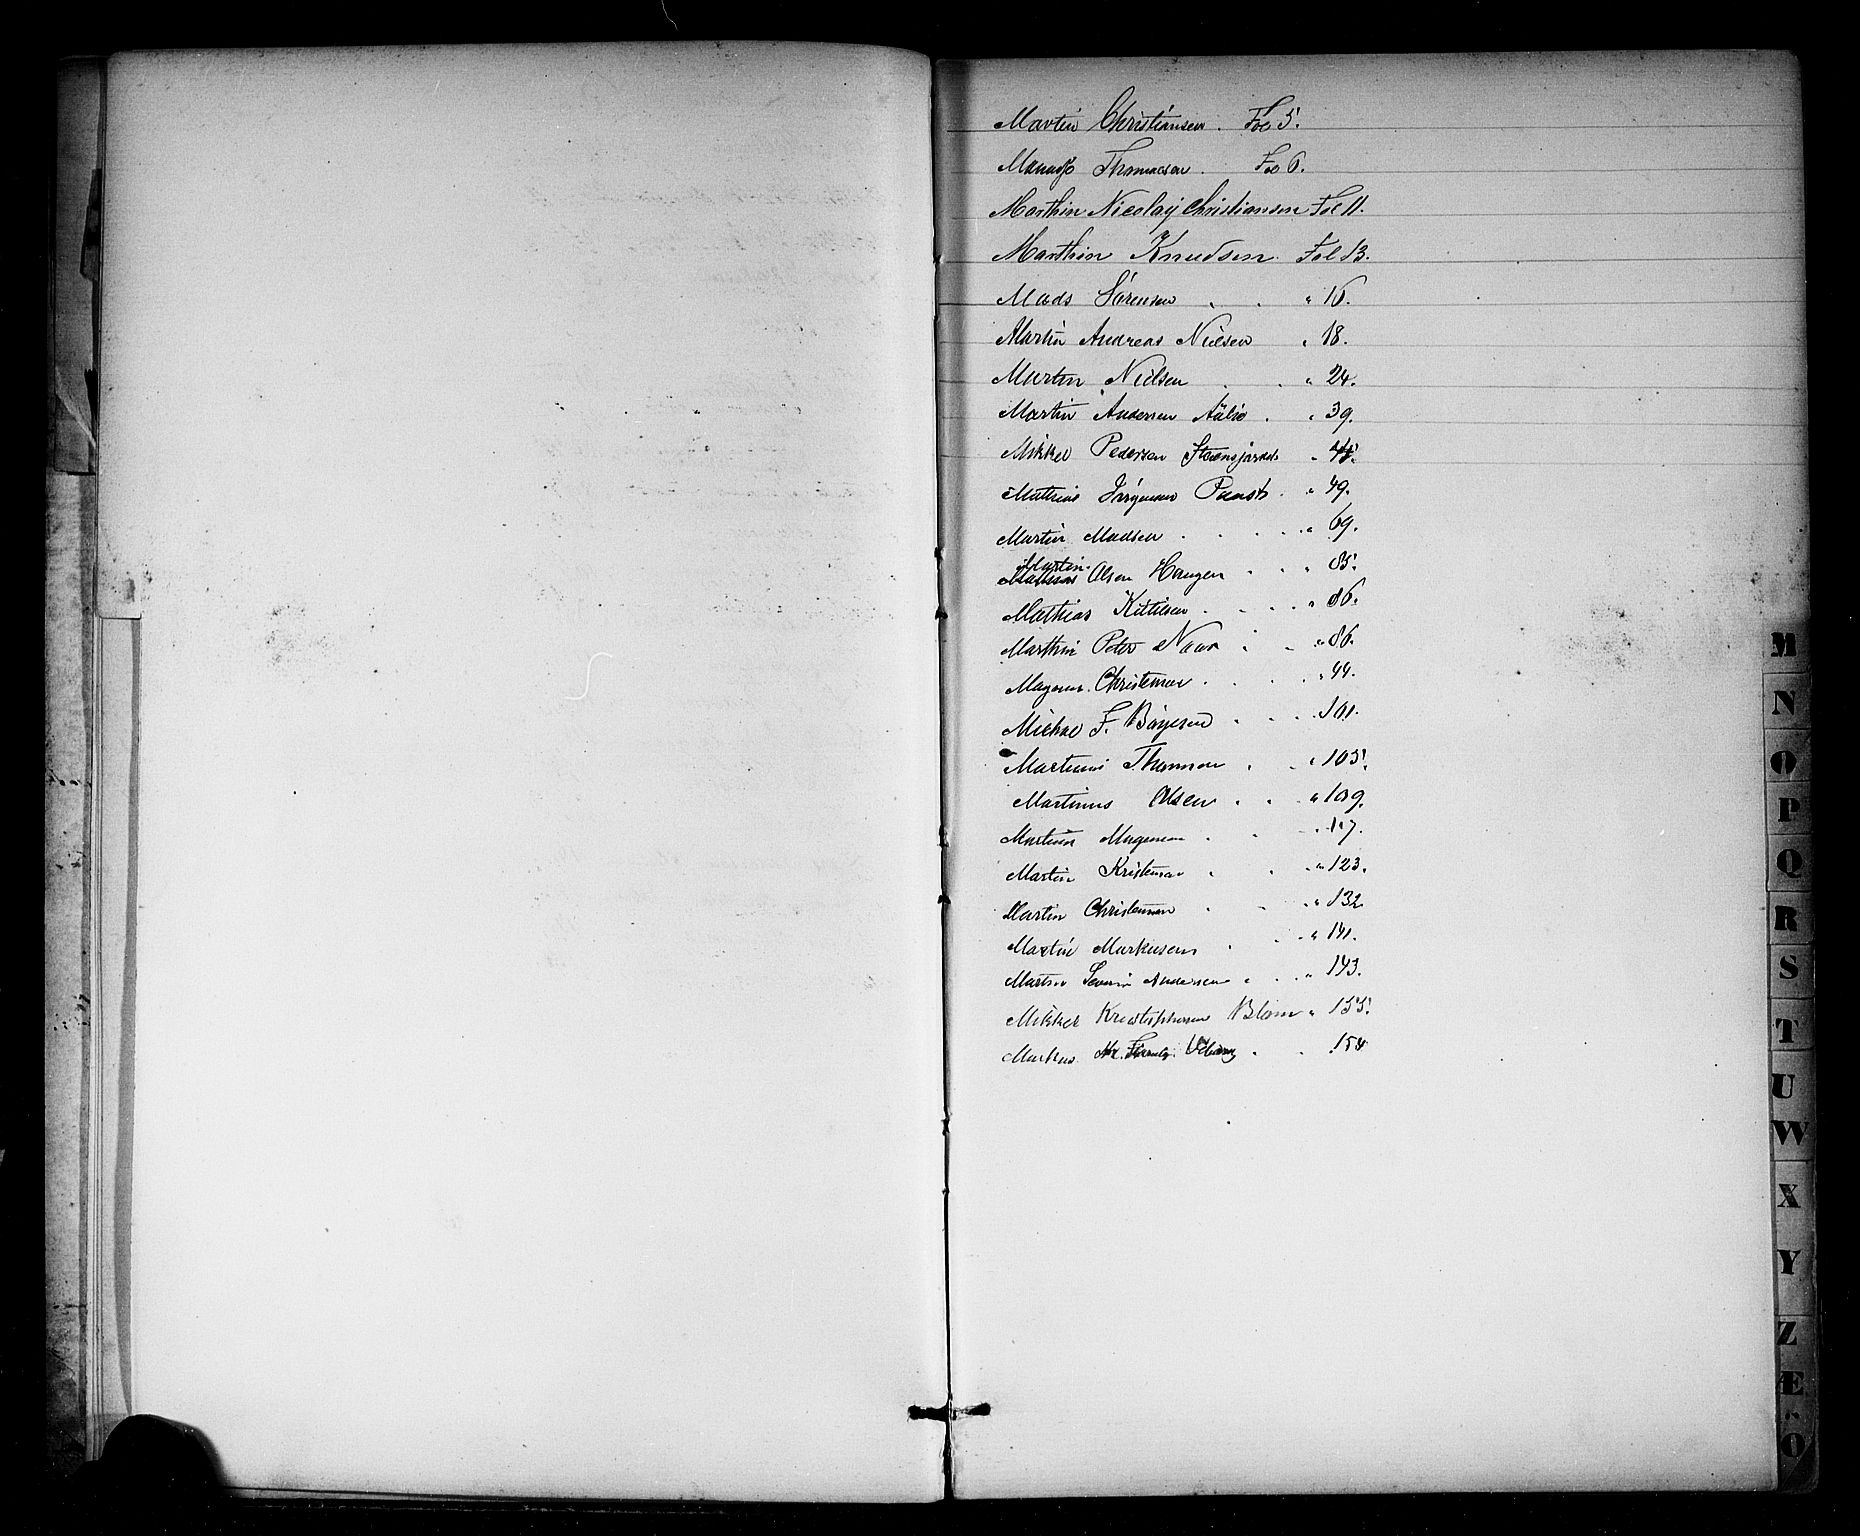 Martin Christiansen . Fol 5.
Thomassen . Fol 6.
Marthin Nicolaij Christiansen Fol 11.
Marthin Knudsen. Fol 13.
Mads Sørensen . . " 16.
Martin Andreas Nielsen " 18.
Martin Nielsen . . " 24.
Martin Andersen . " 39.
Mikkel Pedersen "
Mathias Jørgensen . " 49.
Martin Madsen . . . . . " 69.
Martin
Mathias Olsen Haugen . . . " 85.
Mathias Kittilsen . . . . " 86.
Marthin Peter . . " 86.
Magnus Christensen . . . . "
Michael F. Bøyesen . . . . 101.
Martinius Thomsen . . " 105.
Martinus Olsen . . . " 109.
Martin Magnussen . . . " 117.
Martin Kristensen . . . " 123.
Martin Christensen . . . " 132
Martin Markusen . . . " 141.
Martin Severin Andersen . . . " 143.
Mikkel Kristophersen Blom " 155.
Markus . . 154
M
N
O
P
Q
R
S
T
U
W
X
Y
Z
Æ
Ö